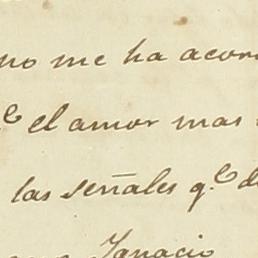 no me ha acor
el amor mas
las señales q.e d
Ignacio